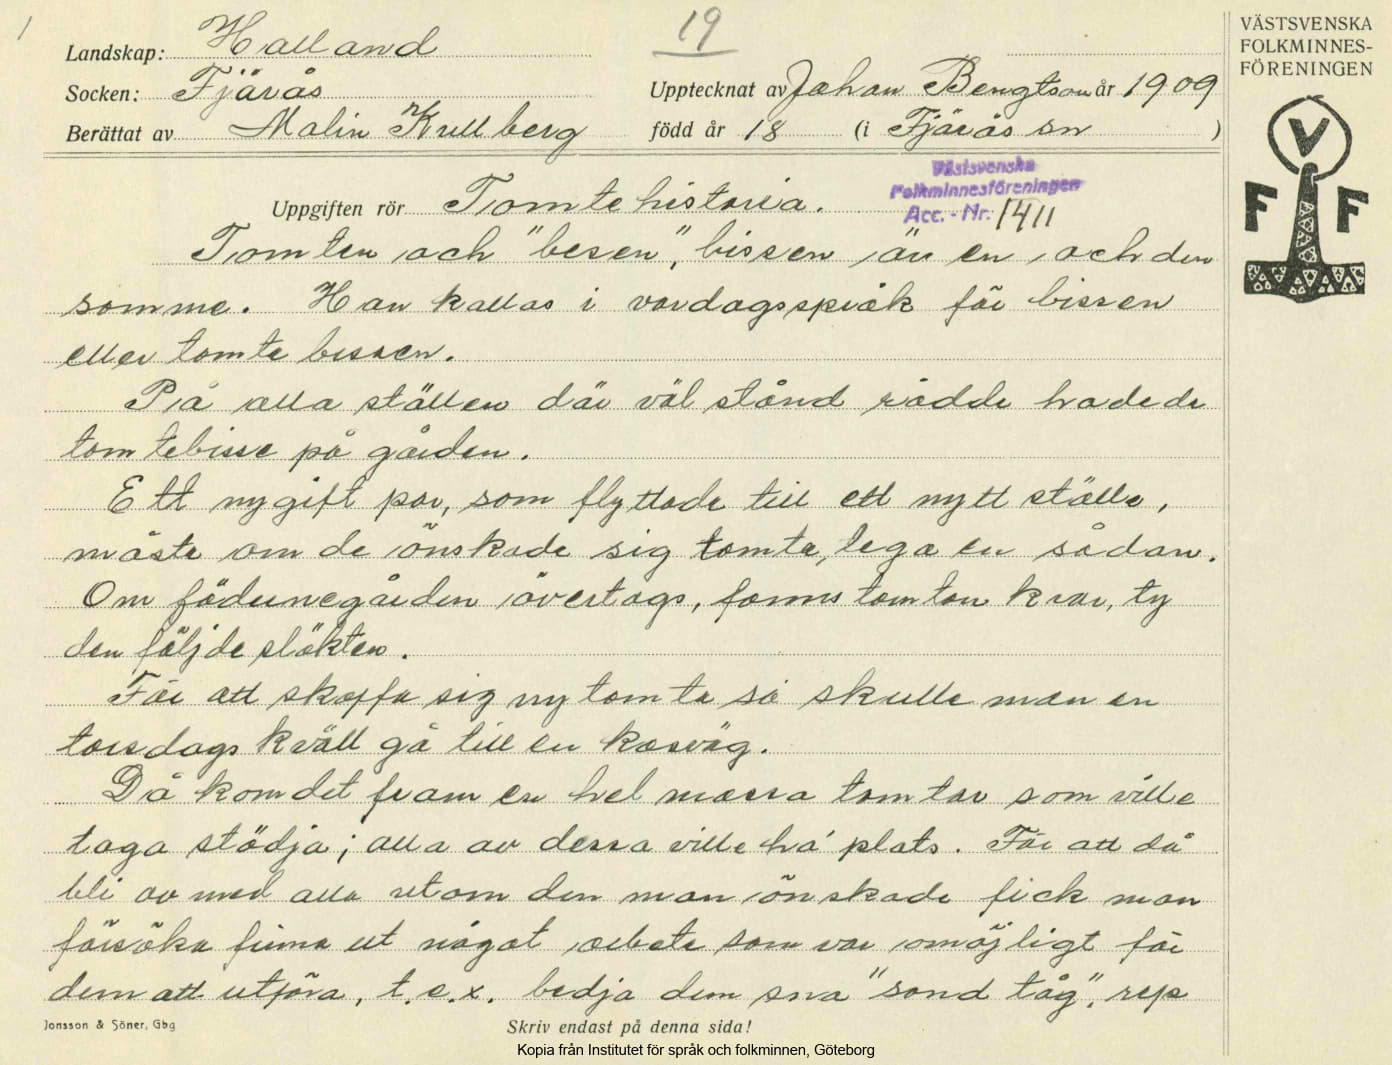 1
19
Landskap: Halland
Socken: Fjärås
Upptecknat av Johan Bengtson år 1909
Berättat av Malin Kullberg
född år 18 (i Fjärås sn )
VÄSTSVENSKA
FOLKMINNES-
FÖRENINGEN
V
F F
Västsvenska
Folkminnesföreningen
Acc. - Nr. 1411
Uppgiften rör Tomtehistoria.
Tomten och "besen", bissen är en och den
somme. Han kallas i vardagsspråk för bissen
eller tomte bissen.
På alla ställen där väl stånd rådde hade de
tomtebisse på gården.
Ett nygift par, som flyttade till ett nytt ställe,
måste om de önskade sig tomte, lega en sådan.
Om födernegården övertogs, fanns tomten kvar, ty
den följde släkten.
För att skaffa sig ny tomte så skulle man en
torsdags kväll gå till en korsväg.
Då kom det fram en hel massa tomtar som ville
taga städja; alla av dessa ville ha' plats. För att då
bli av med alla utom den man önskade fick man
försöka finna ut något arbete som var omöjligt för
dem att utföra, t.e.x. bedja dem sno "sond tåg", rep
Jonsson & Söner, Gbg
Skriv endast på denna sida!
Kopia från Institutet för språk och folkminnen, Göteborg